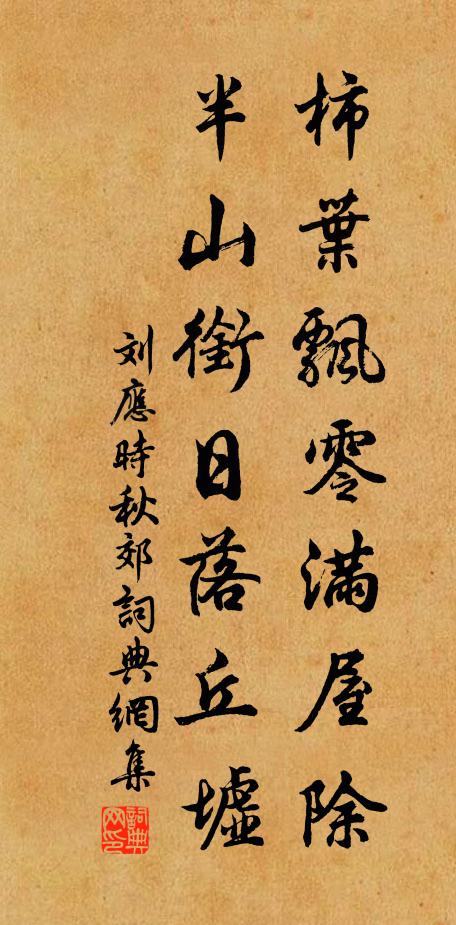 柿葉飄零滿屋除
半山銜日落丘墟
刘應時秋郊詞典網集
詞典網印